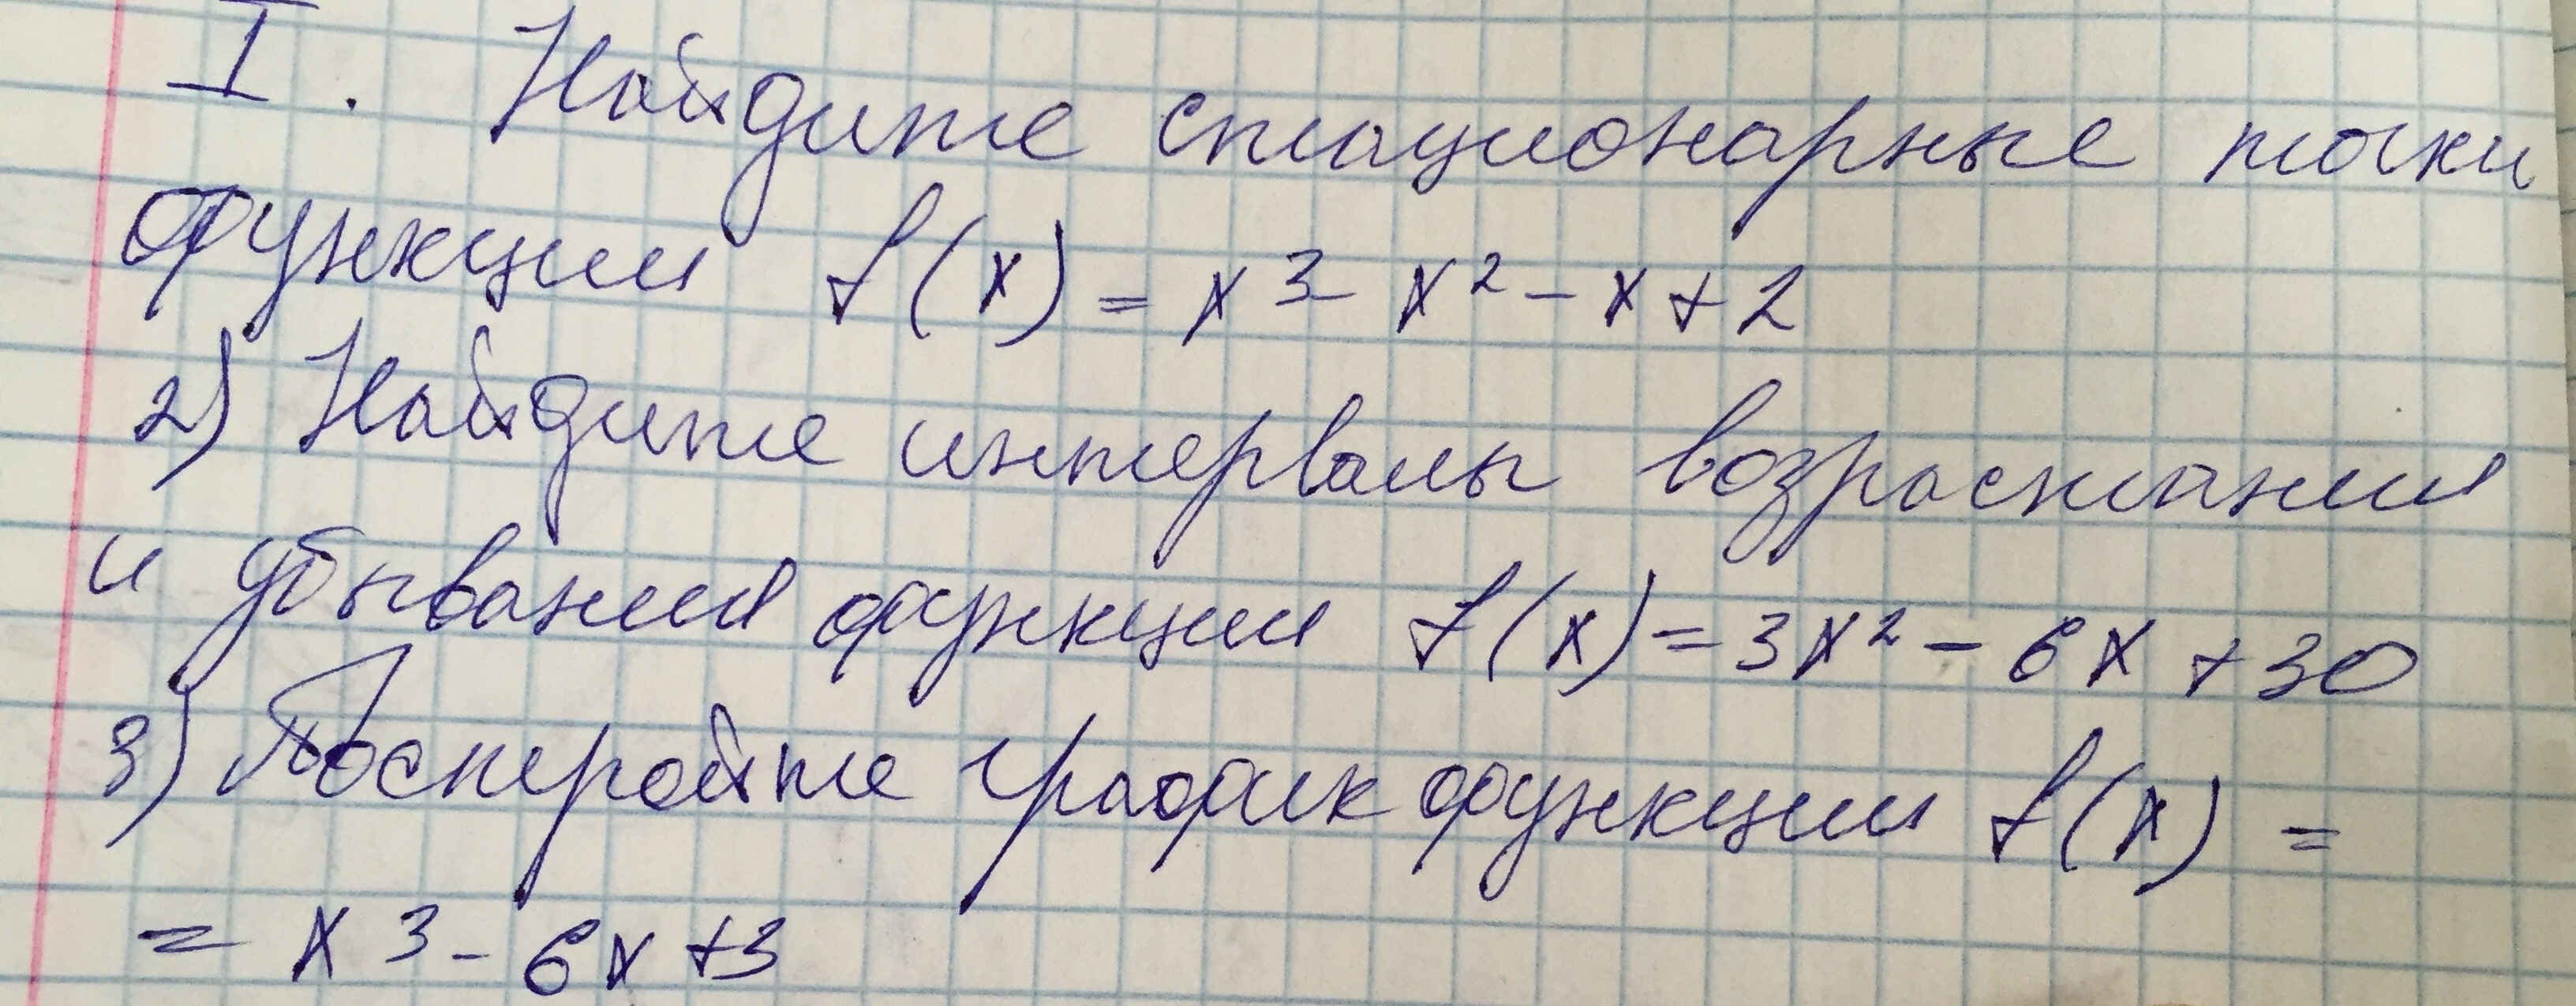 I. Найдите стационарные точки
функции f(x) = x³ - x² - x + 2
2) Найдите интервалы возрастания
и убывания функции f(x) = 3x² - 6x + 30
3) Постройте график функции f(x) =
= x³ - 6x + 3